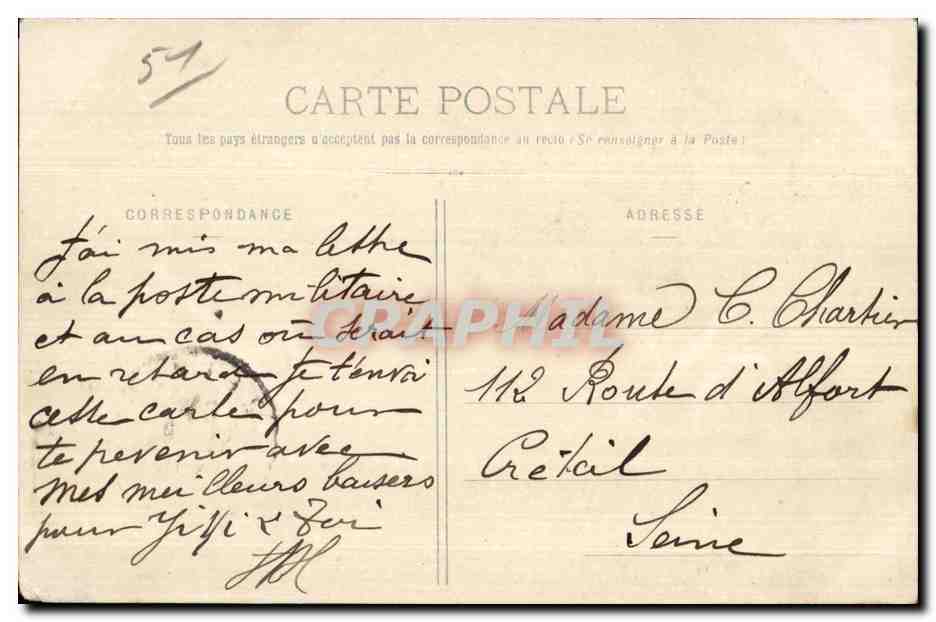 51
CARTE POSTALE
Tous les pays étrangers n'acceptent pas la correspondance au recto (Se renseigner à la Poste)
CORRESPONDANCE
J'ai mis ma lettre
à la poste militaire
et au cas où serait
en retard Je t'envoi
cette carte pour
te pevenir avec
mes meilleurs baisers
pour & Toi
ADRESSE
Madame C. Chartier
112 Route d'Alfort
Créteil
Seine
CPAPHIL